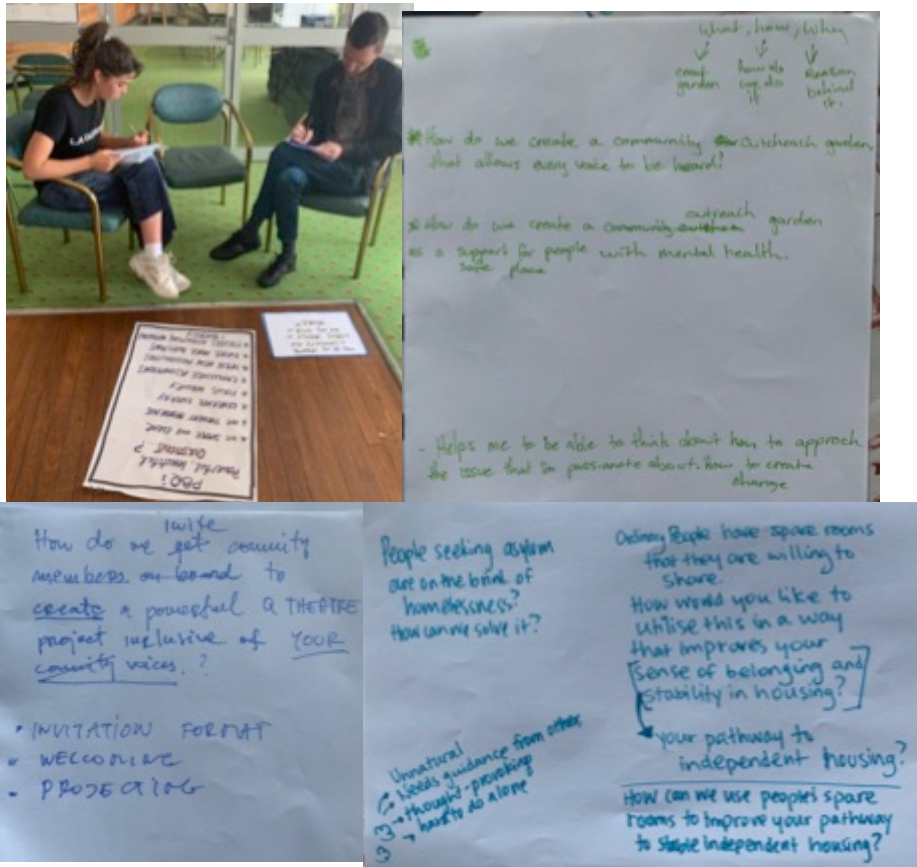 PBQ's
Powerful, beautiful
QUESTIONS?
GENERATE ENERGY
FOCUS INQUIRY
CHALLENGE ASSUMPTIONS
OPEN NEW POSSIBILITIES
EVOKES MORE QUESTIONS
What, how, why
garden
how do
we do
it
Reason
behind
it.
How do we create a community outreach garden
that allows every voice to be heard?
How do we create a community outreach garden
as a support for people with mental health.
safe place
- Helps me to be able to think about how to approach
the issue that I'm passionate about. How to create
change
invite
How do we get comunity
members on board to
create a powerful THEATRE
project inclusive of YOUR
comunity voices.?
• INVITATION FORMAT
• WELCOMING
• PROJECTING
People seeking asylum
are on the brink of
homelessness?
How can we solve it?
Unnatural
Needs guidance from other
thought-provoking
hard to do alone
Ordinary People have spare rooms
that they are willing to
share.
How would you like to
utilise this in a way
that improves your
[sense of belonging and
stability in housing?]
your pathway to
independent housing?
How can we use people's spare
rooms to improve your pathway
to stable independent housing?